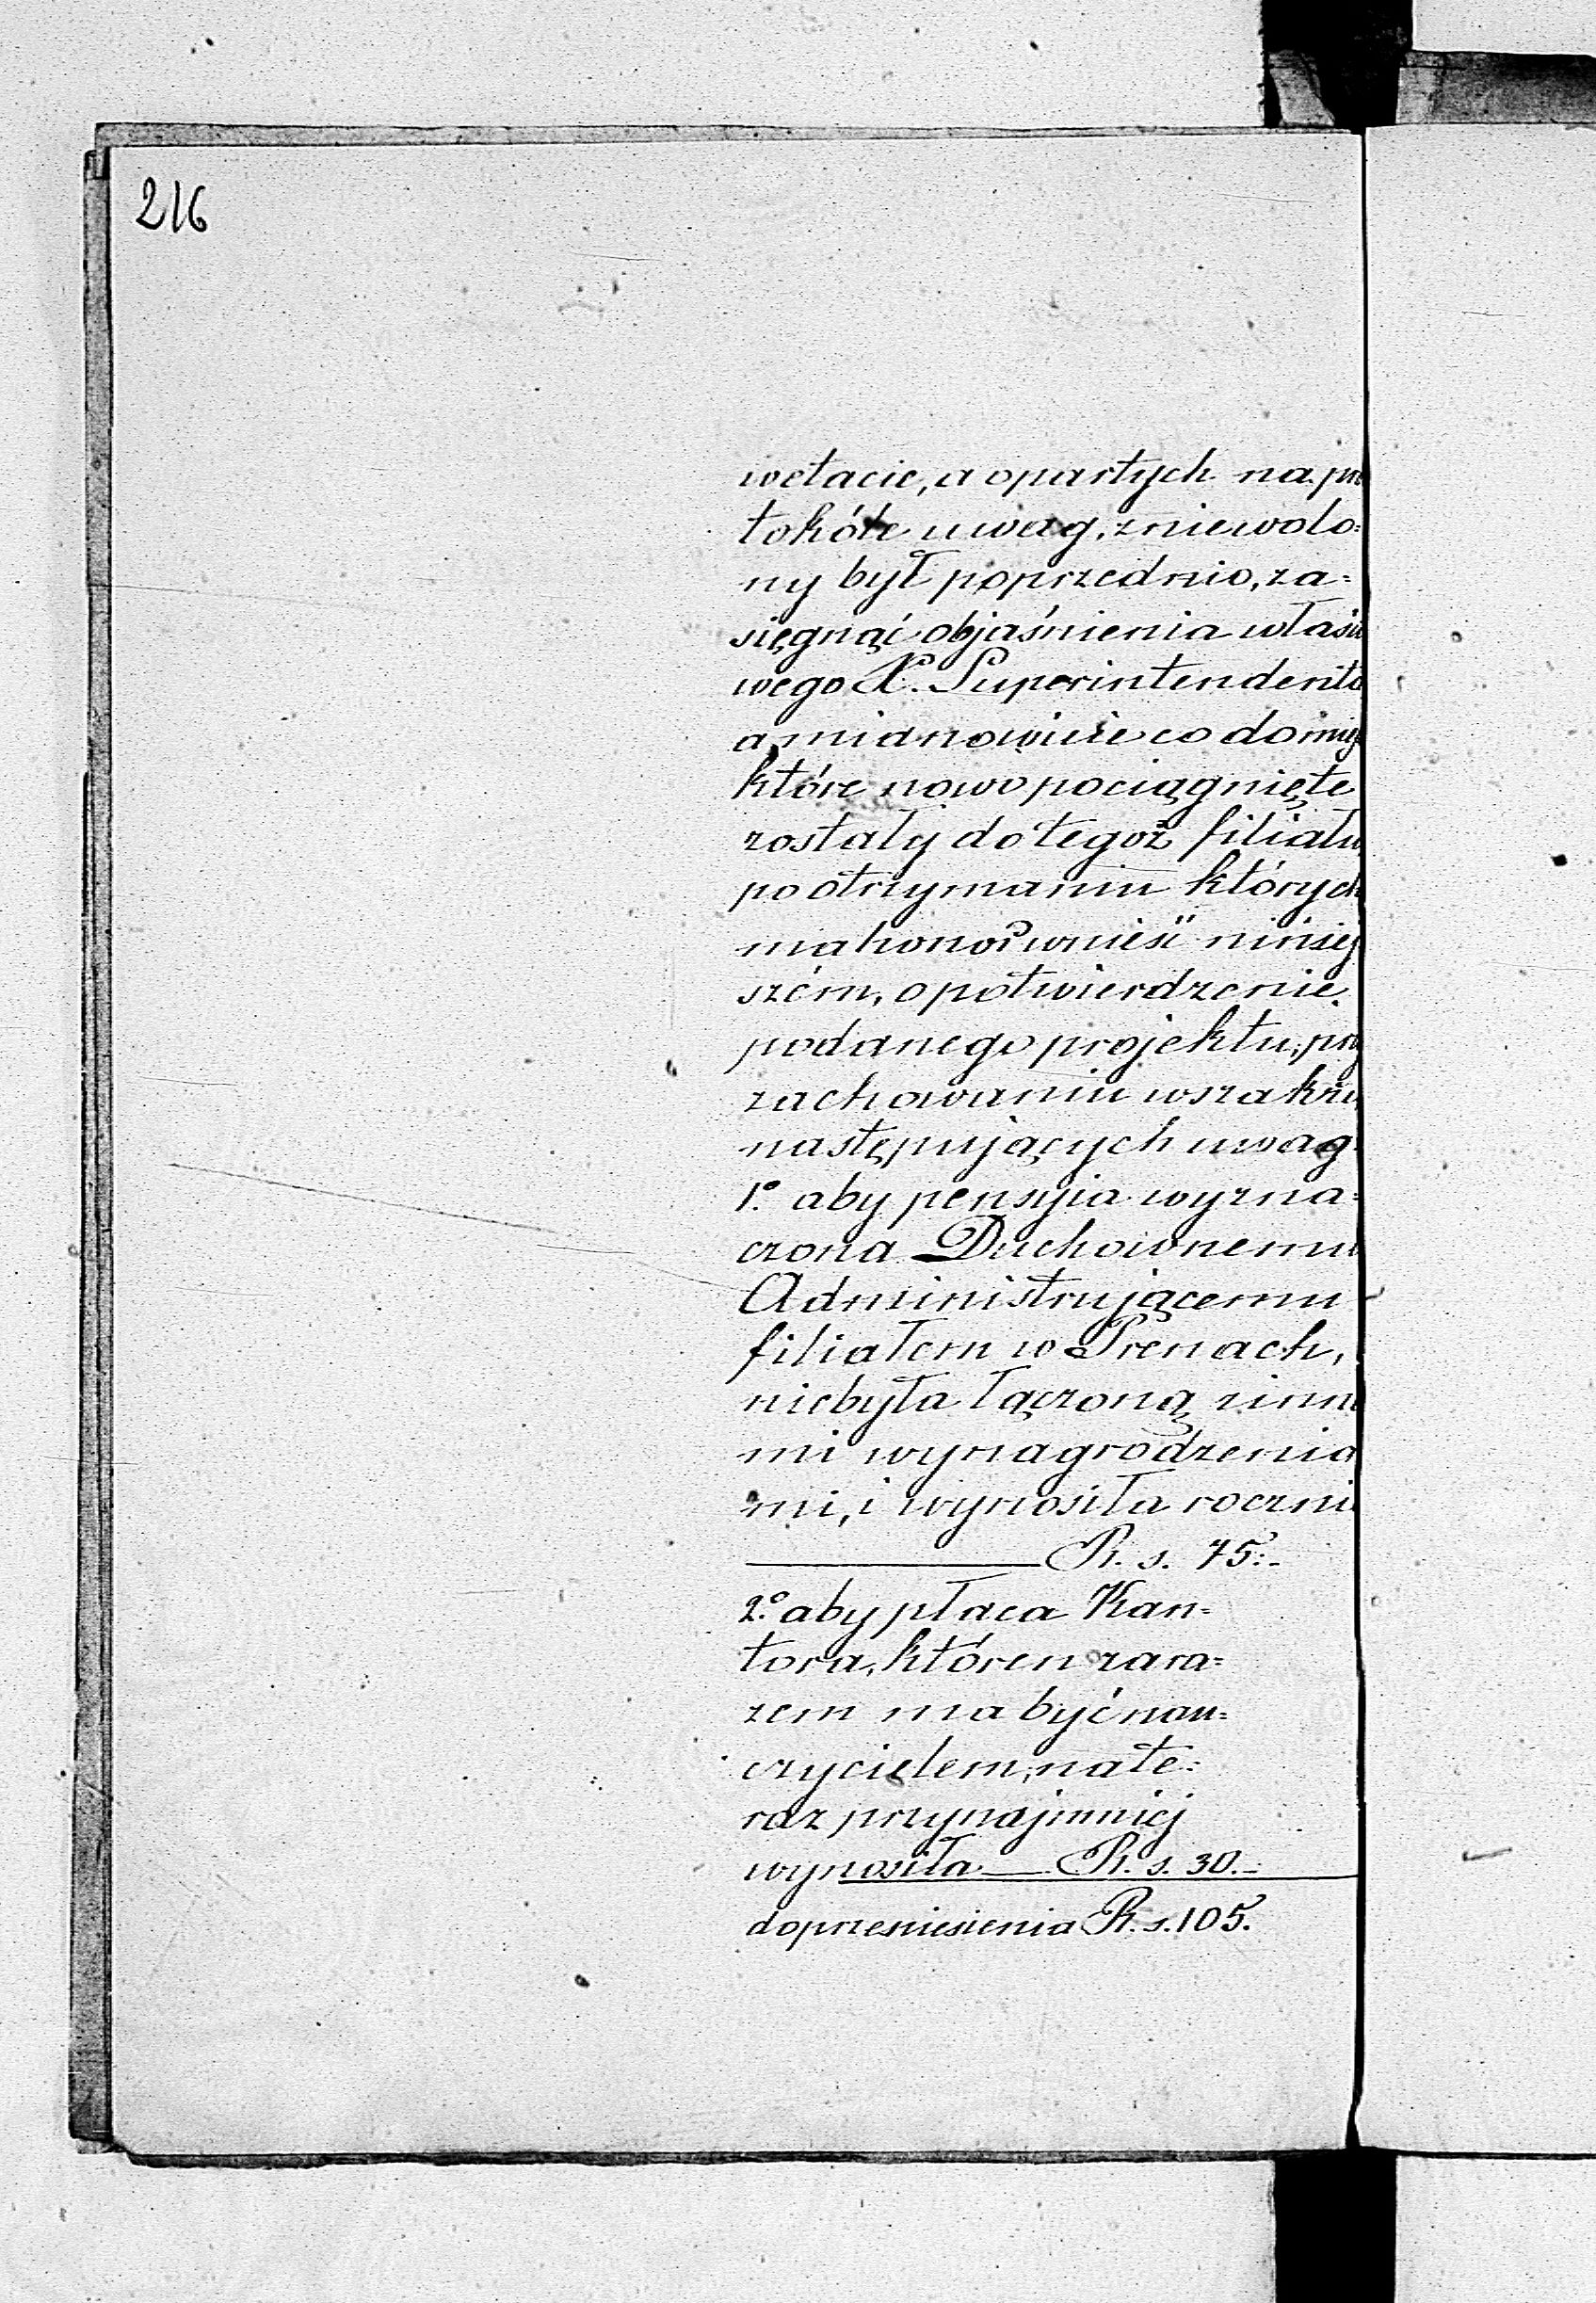 216
wetacie, a opartych na pro
tokóle uwag, zniewolo=
ny był poprzednio, za=
sięgnąć objaśnienia właści
wego X. Superintendenta
a mianowicie co do
które nowo pociągnięte
zostały do tegoż filiału
po otrzymaniu których
ma honor wnieść niniej
szém, o potwierdzenie
podanego projektu, przy
zachowaniu wszakże
następujących uwag
1.° aby pensyia wyzna=
czona Duchownemu
Administrującemu
filiałem w Prenach,
niebyła łączoną z inne
mi wynagrodzenia
mi, i wynosiła rocznie
R. s. 75.-
2.° aby płaca Kan=
tora, któren zara=
zem ma być nau=
czycielem, na te=
raz przynajmniej
wynosiła — R. s. 30.-
do przeniesienia R. s. 105.